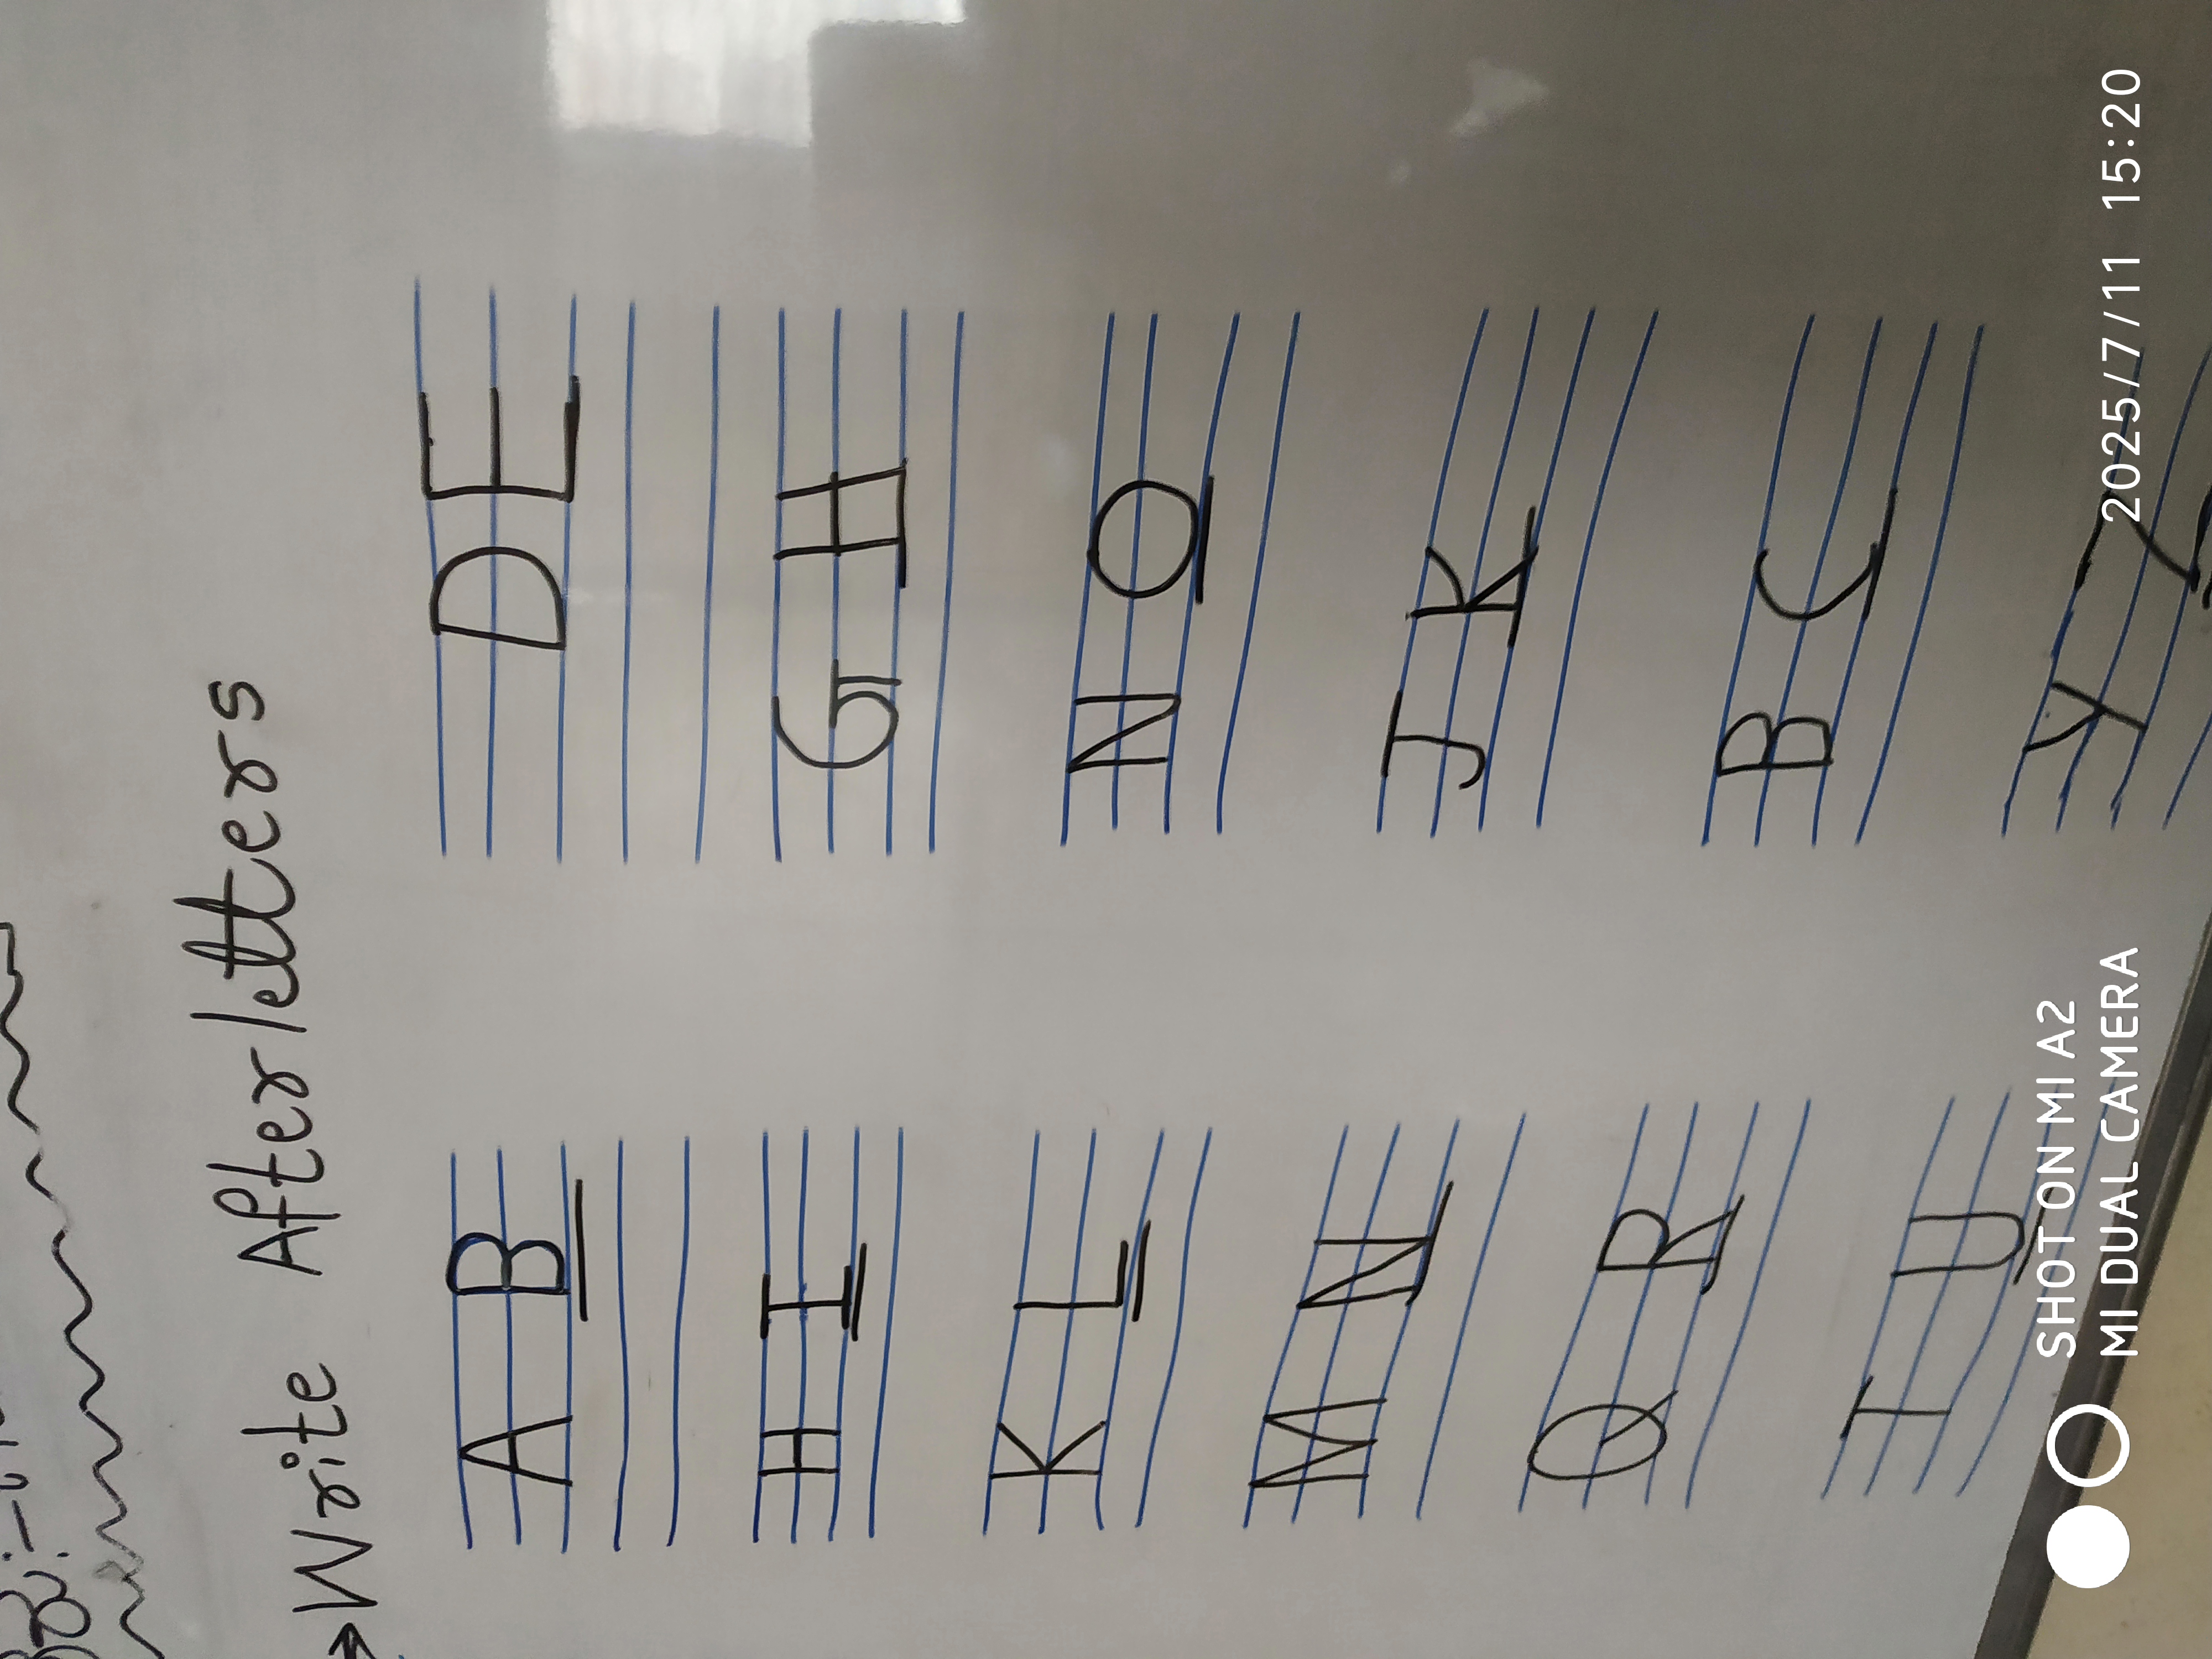 → Write After letters
A B D E
H I G H
K L N O
M N J K
Q R B C
T U Y Z
SHOT ON MI A2
MI DUAL CAMERA
2025/7/11 15:20